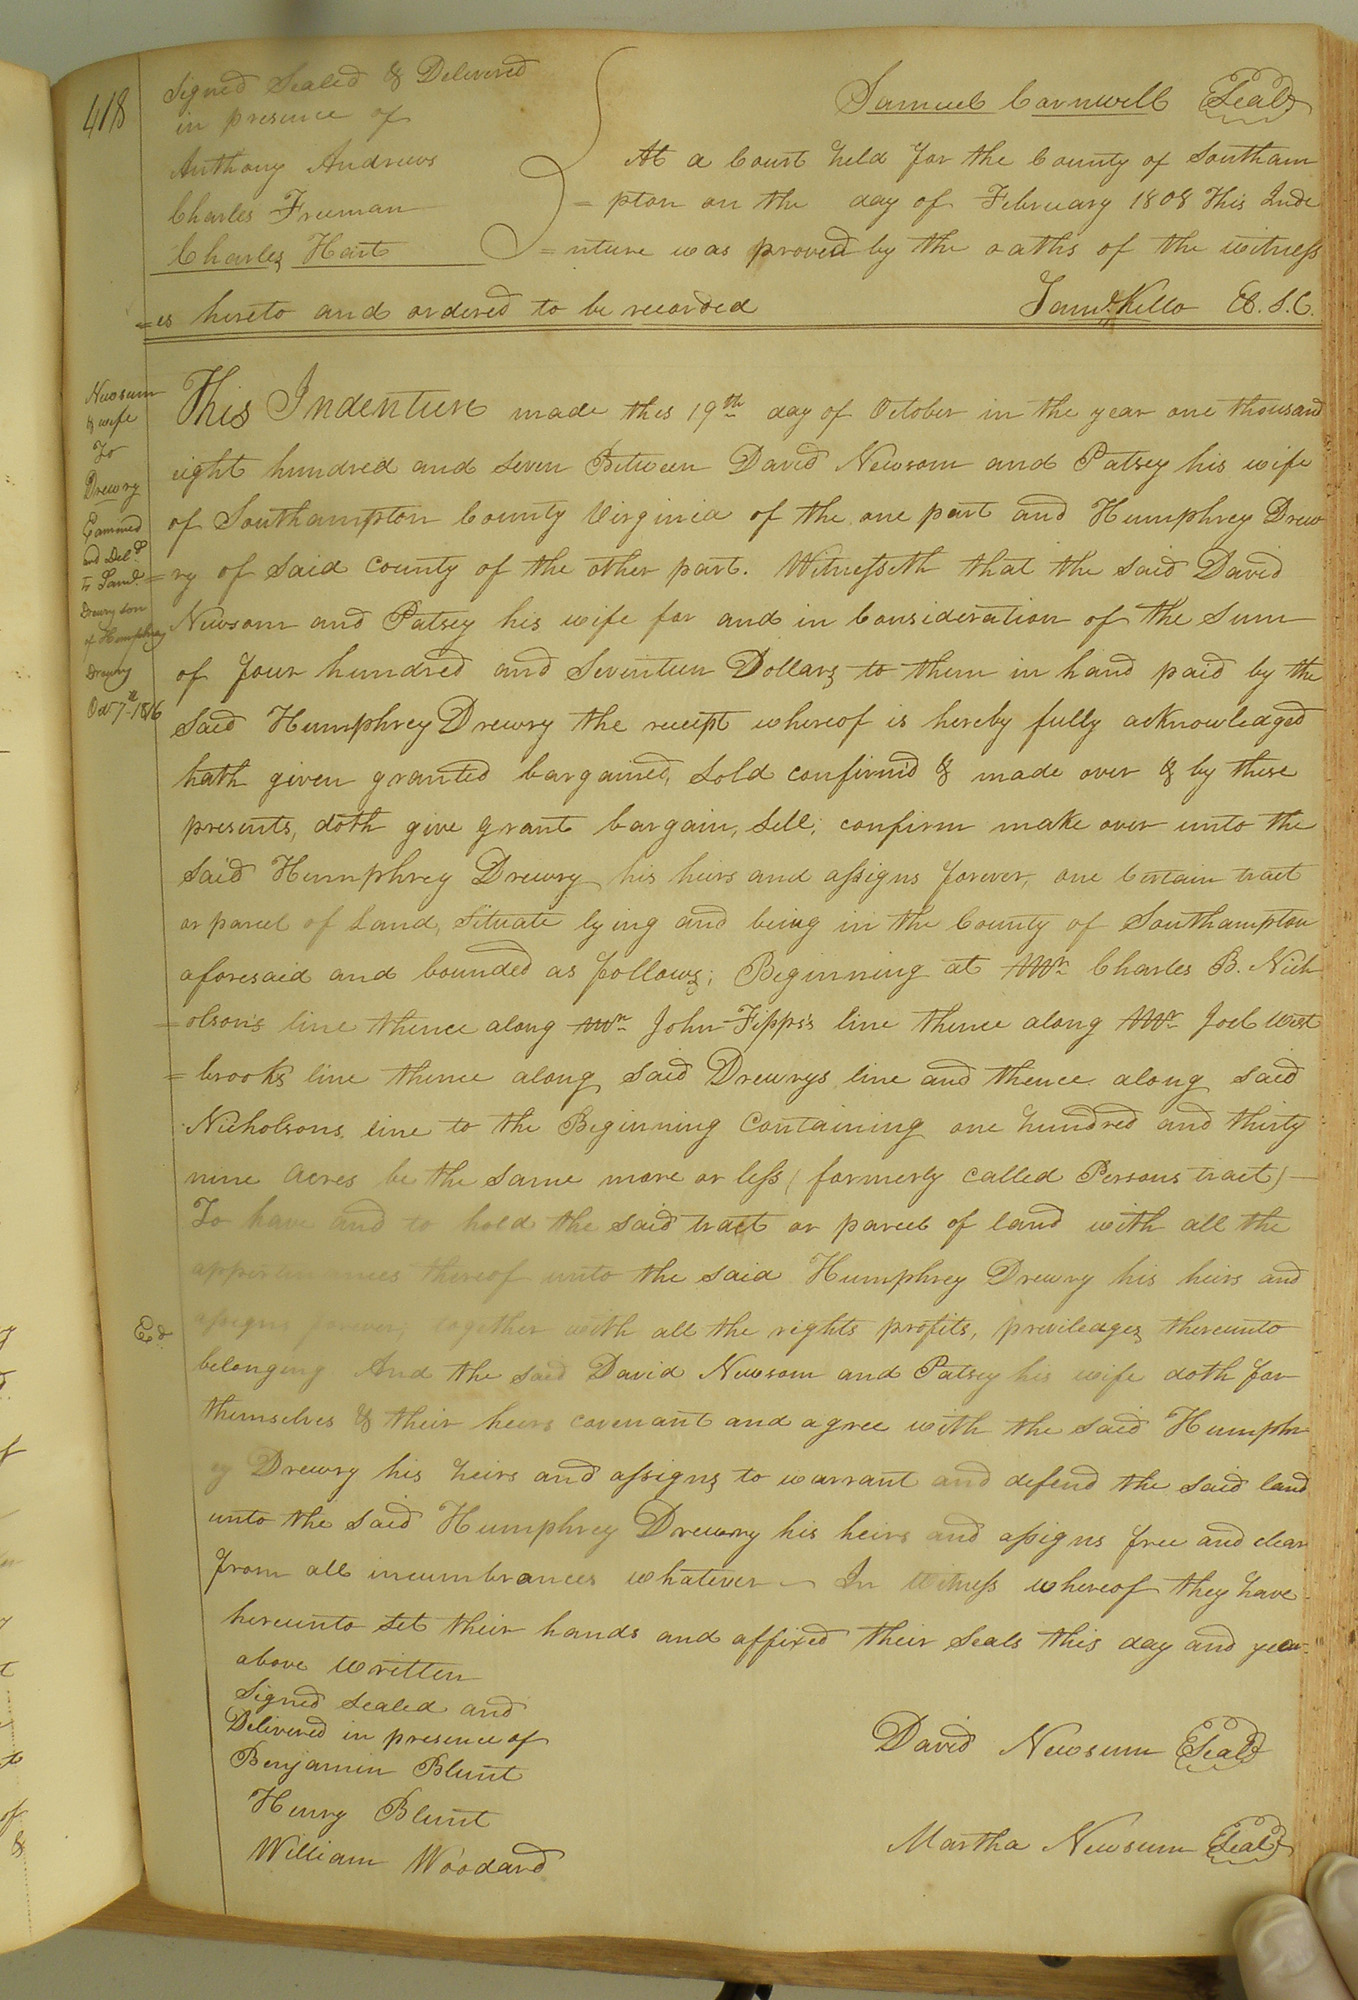 418
Signed Sealed & Delivered
in presence of
Anthony Andrews
Charles Freeman
Charles Hart
Samuel Carnwell Seal
At a Court held for the County of Southam
=pton on the day of February 1808 This Inde
=nture was proved by the oaths of the witness
=es hereto and ordered to be recorded
Saml. Kello Cl. S.C.
Newsum
& wife
To
Drewry
Examined
and Deld.
to Saml.
Drewry son
of Humphrey
Drewry
Octr 7th 1816
This Indenture made this 19th day of October in the year one thousand
eight hundred and seven Between David Newsom and Patsey his wife
of Southampton County Virginia of the one part and Humphrey Drew
=ry of said County of the other part. Witnesseth that the said David
Newsom and Patsey his wife for and in Consideration of the Sum
of four hundred and Seventeen Dollars to them in hand paid by the
said Humphrey Drewry the receipt whereof is hereby fully acknowledged
hath given granted bargained, sold confirm'd & made over & by these
presents, doth give grant bargain, sell, confirm make over unto the
said Humphrey Drewry his heirs and assigns forever, one Certain tract
or parcel of Land, Situate lying and being in the County of Southampton
aforesaid and bounded as follows; Beginning at Mr. Charles B. Nich
=olson's line thence along Mr. John Fipps's line thence along Mr. Joel West
=brooks line thence along said Drewrys line and thence along said
Nicholsons line to the Beginning Containing one hundred and thirty
nine Acres be the same more or less (formerly called Persons tract)
To have and to hold the said tract or parcel of land with all the
appertenances thereof unto the said Humphrey Drewry his heirs and
assigns forever together with all the rights profits, priviledges thereunto
Ed.
belonging And the said David Newsom and Patsey his wife doth for
themselves & their heirs covenant and agree with the said Humphr
ey Drewry his heirs and assigns to warrant and defend the said land
unto the said Humphrey Drewry his heirs and assigns free and clear
from all incumbrances whatever In Witness whereof they have
hereunto set their hands and affixed their seals this day and year
above written
Signed sealed and
Delivered in presence of
Benjamin Blunt
Henry Blunt
William Woodard
David Newsum Seal
Martha Newsum Seal